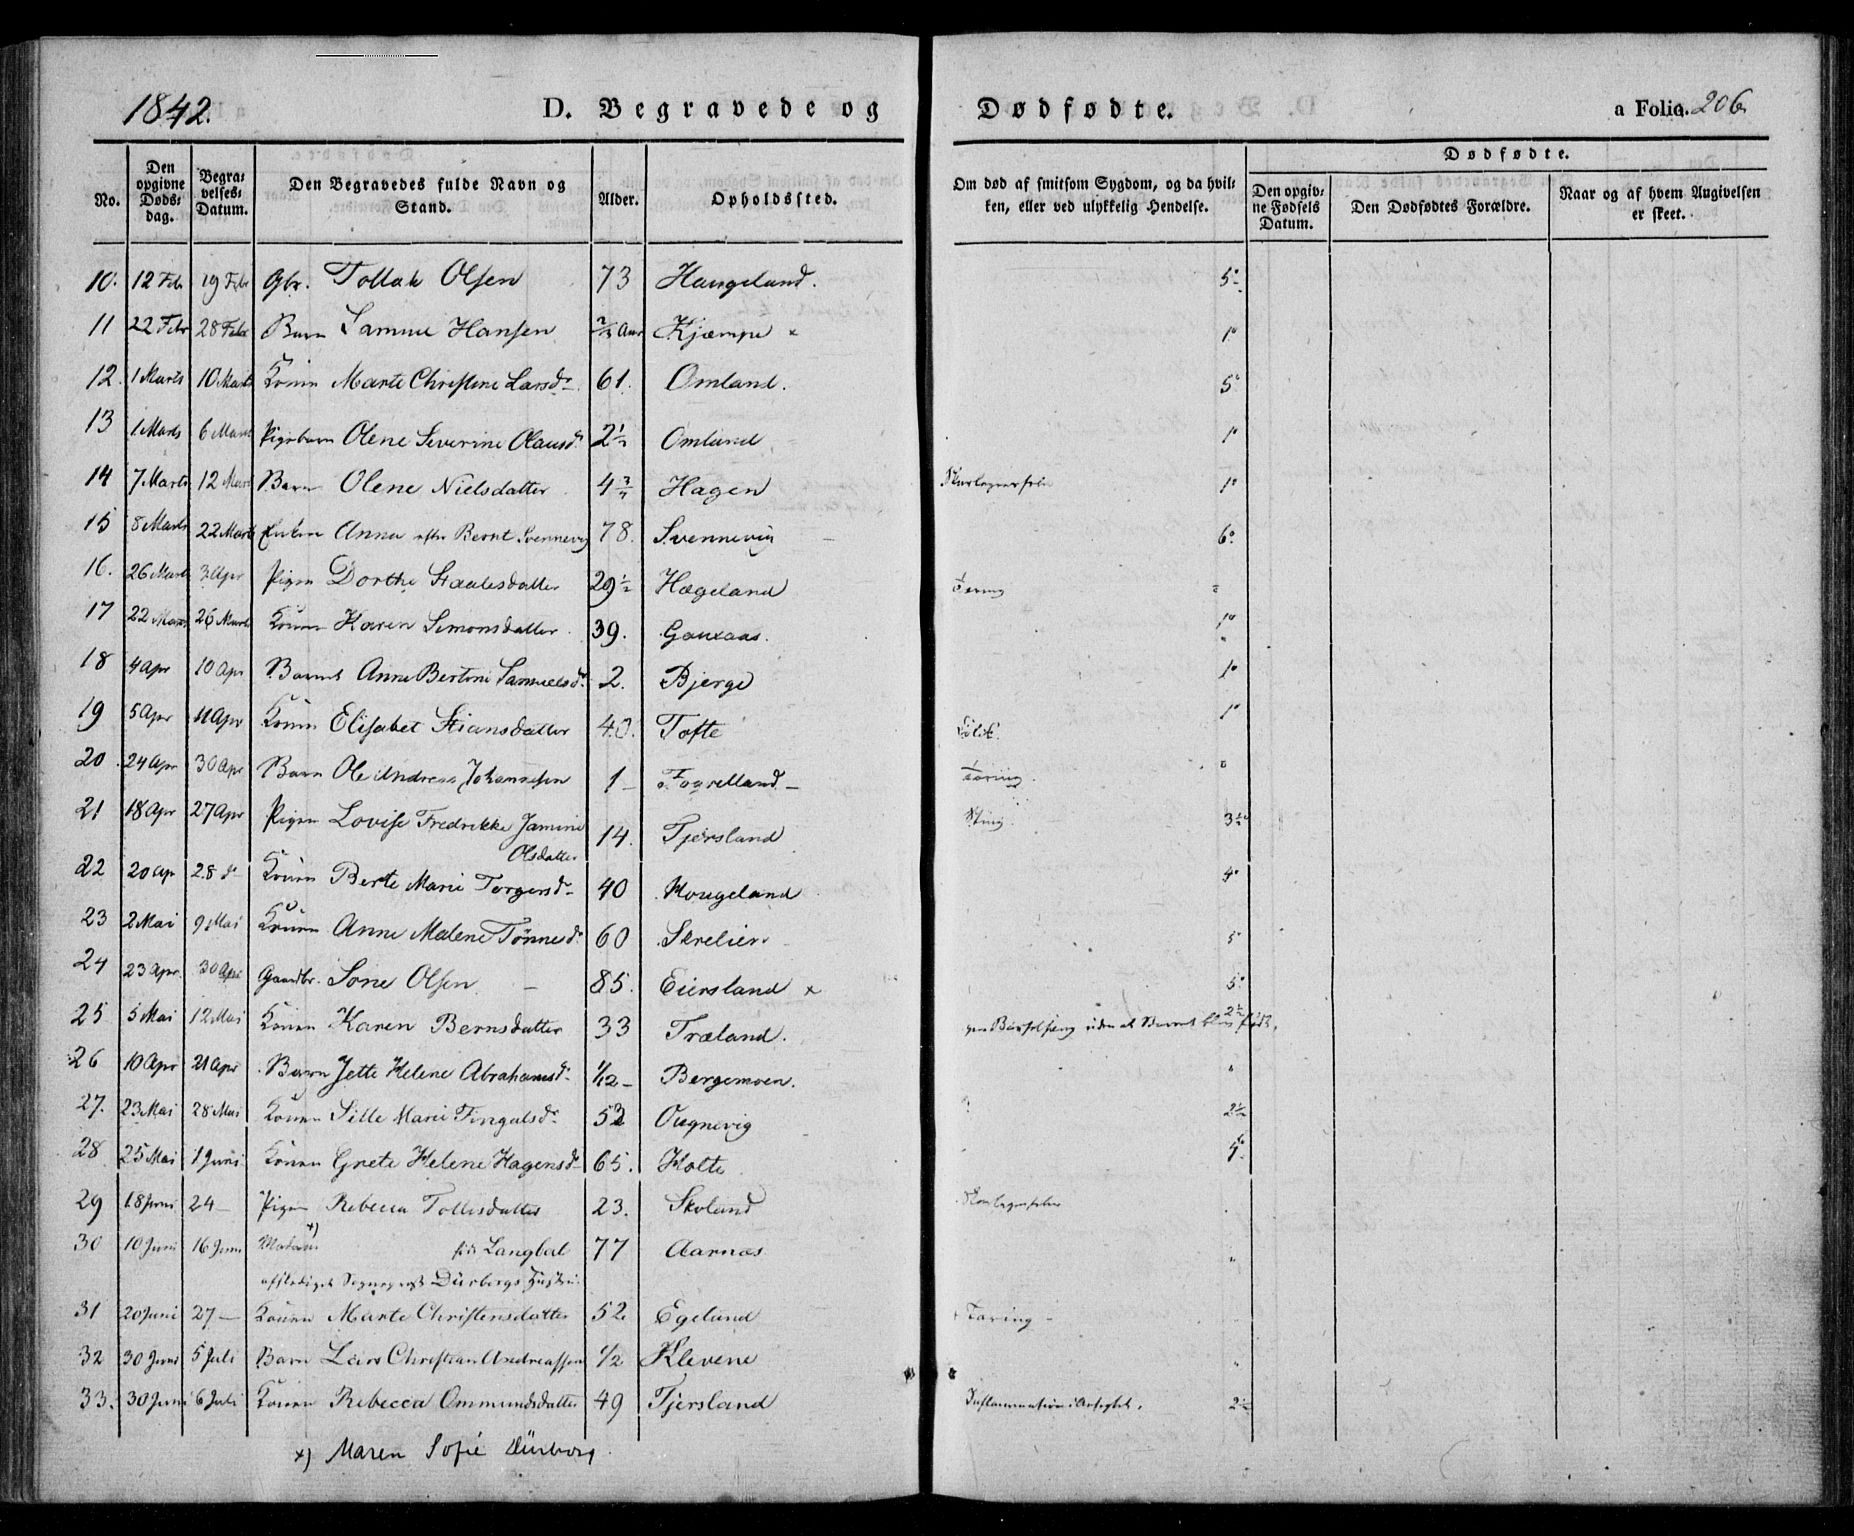 1842. D. Begravede og Dødfødte. a Folio. 206.
No. Den opgivne Dødsdag. Begravelses-Datum. Den Begravedes fulde Navn og Stand. Alder. Opholdssted. Om død af smitsom Sygdom, og da hvilken, eller ved ulykkelig Hendelse. Dødfødte. Den opgivne Fødsels Datum. Den Dødfødtes Forældre. Naar og af hvem Angivelsen er skeet.
10. 12 Febr 19 Febr Gbr. Tollak Olsen 73 Haugeland. 5
11 22 Febr 28 Febr Barn Hansen Aar Kjæmpe 1
12. 1 Marts 10 Marts Konen Marte Christine Larsd. 61. Omland. 5
13 1 Marts 6 Marts Pigebarn Olene Severine Olausd. 2½ Omland 1
14 7 Marts 12 Marts Barn Olene Nielsdatter 4 Hagen 1
15 8 Marts 22 Marts Enken Anna efter Bernt Svennevig 78. Svennevig 6
16. 26 Marts 3 Apr Pigen Dorthe Staalesdatter 29½ Hægeland Tæring
17 22 Marts 26 Marts Konen Karen Simonsdatter 39. 1
18 4 Apr 10 Apr Barnet Anne Bertine Samuelsd. 2. Bjerge 1
19 5 Apr 11 Apr Konen Elisabet Stiansdatter 40. Tofte 1
20. 24 Apr 30 Apr Barn Ole Andreas Johannesen 1 Tæring.
21 18 Apr 27 Apr Pigen Lovise Fredrikke Jamine Olsdatter 14. Tjørsland Sting. 3½
22 20 Ap 28 d. Konen Berte Marie Torgersd. 40 Hougeland 4
23 2 Mai 9 Mai Konen Anne Malene Tønnesd. 60 5
24 23 Apr. 30 Apr Gaardbr. Sone Olsen 85. Eiersland x 5
25 5 Mai 12 Mai Konen Karen Berns datter 33 Træland. Barselseng uden at Barnet blev født. 2½
26 10 Apr 21 Apr Barn Jette Helene Abrahamsd. 1/12 Bergemoen.
27. 23 Mai 28 Mai Konen Sille Marie Fingalsd. 2½
28 25 Mai 1 Juni Konen Grete Helene Hagensd. 65. Holte
29 18 Juni 24 Pigen Rebecca Tollisdatter 23. Skoland
30 10 Juni 16 Juni Madam x) født Langbal 77 Aarnæs
Dürbergs Hustru.
31 20 Juni 27 Konen Marte Christensdatter 52. Egeland Tæring
32 30 Juni 5 Juli Barn Lars Christian Andreassen ½ Klevene
33. 30 Juni 6 Juli Konen Rebecca Ommundsdatter 49 Tjersland Inflammation i 2½
x) Maren Sofie Dürborg.